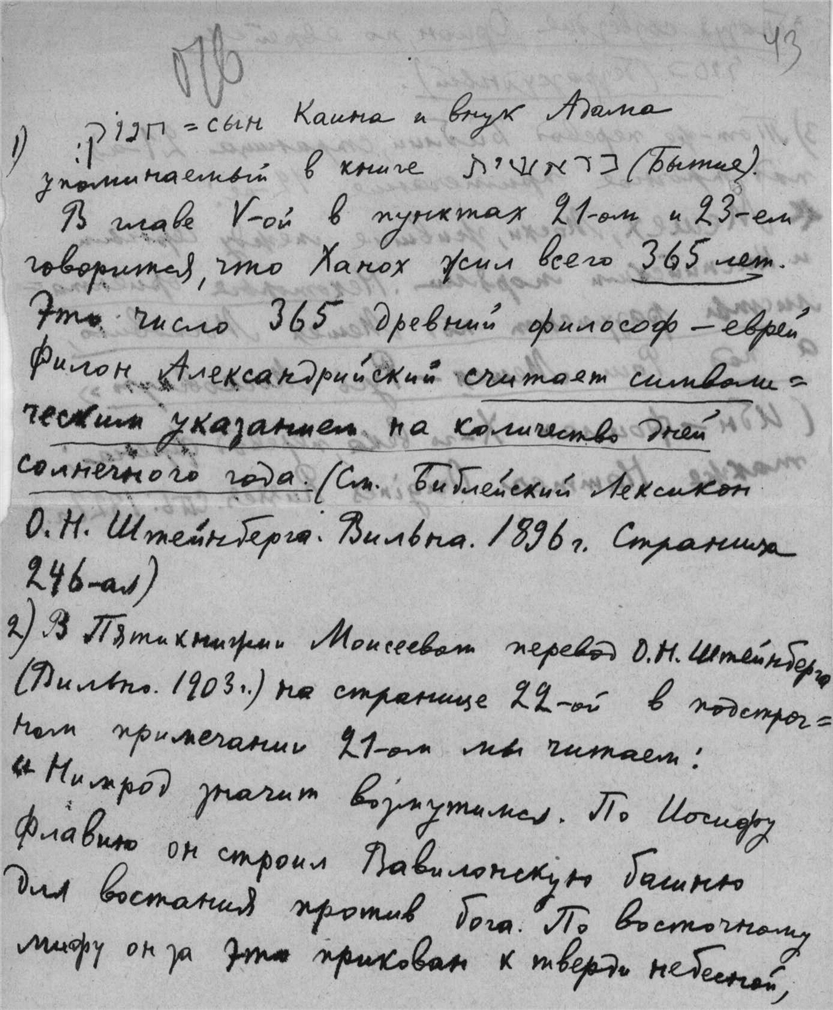 43
1) חנוך: = сын Каина и внук Адама
упоминаемый в книге בראשית (Бытие).
В главе V-ой в пунктах 21-ом и 23-ем
говорится, что Ханох жил всего 365 лет.
Это число 365 древний философ – еврей
Филон Александрийский считает символи=
ческим указанием на количество дней
солнечного года. (См. Библейский Лексикон
О.Н. Штейнберга. Вильна. 1896 г. Страница
246-ая)
2) В Пятикнижии Моисеевом перевод О.Н. Штейнберга
(Вильно. 1903 г.) на странице 22-ой в подстроч=
ном примечании 21-ом мы читаем:
"Нимрод значит возмутимся. По Иосифу
Флавию он строил Вавилонскую башню
для востания против бога. По восточному
мифу он за это прикован к тверди небесной,